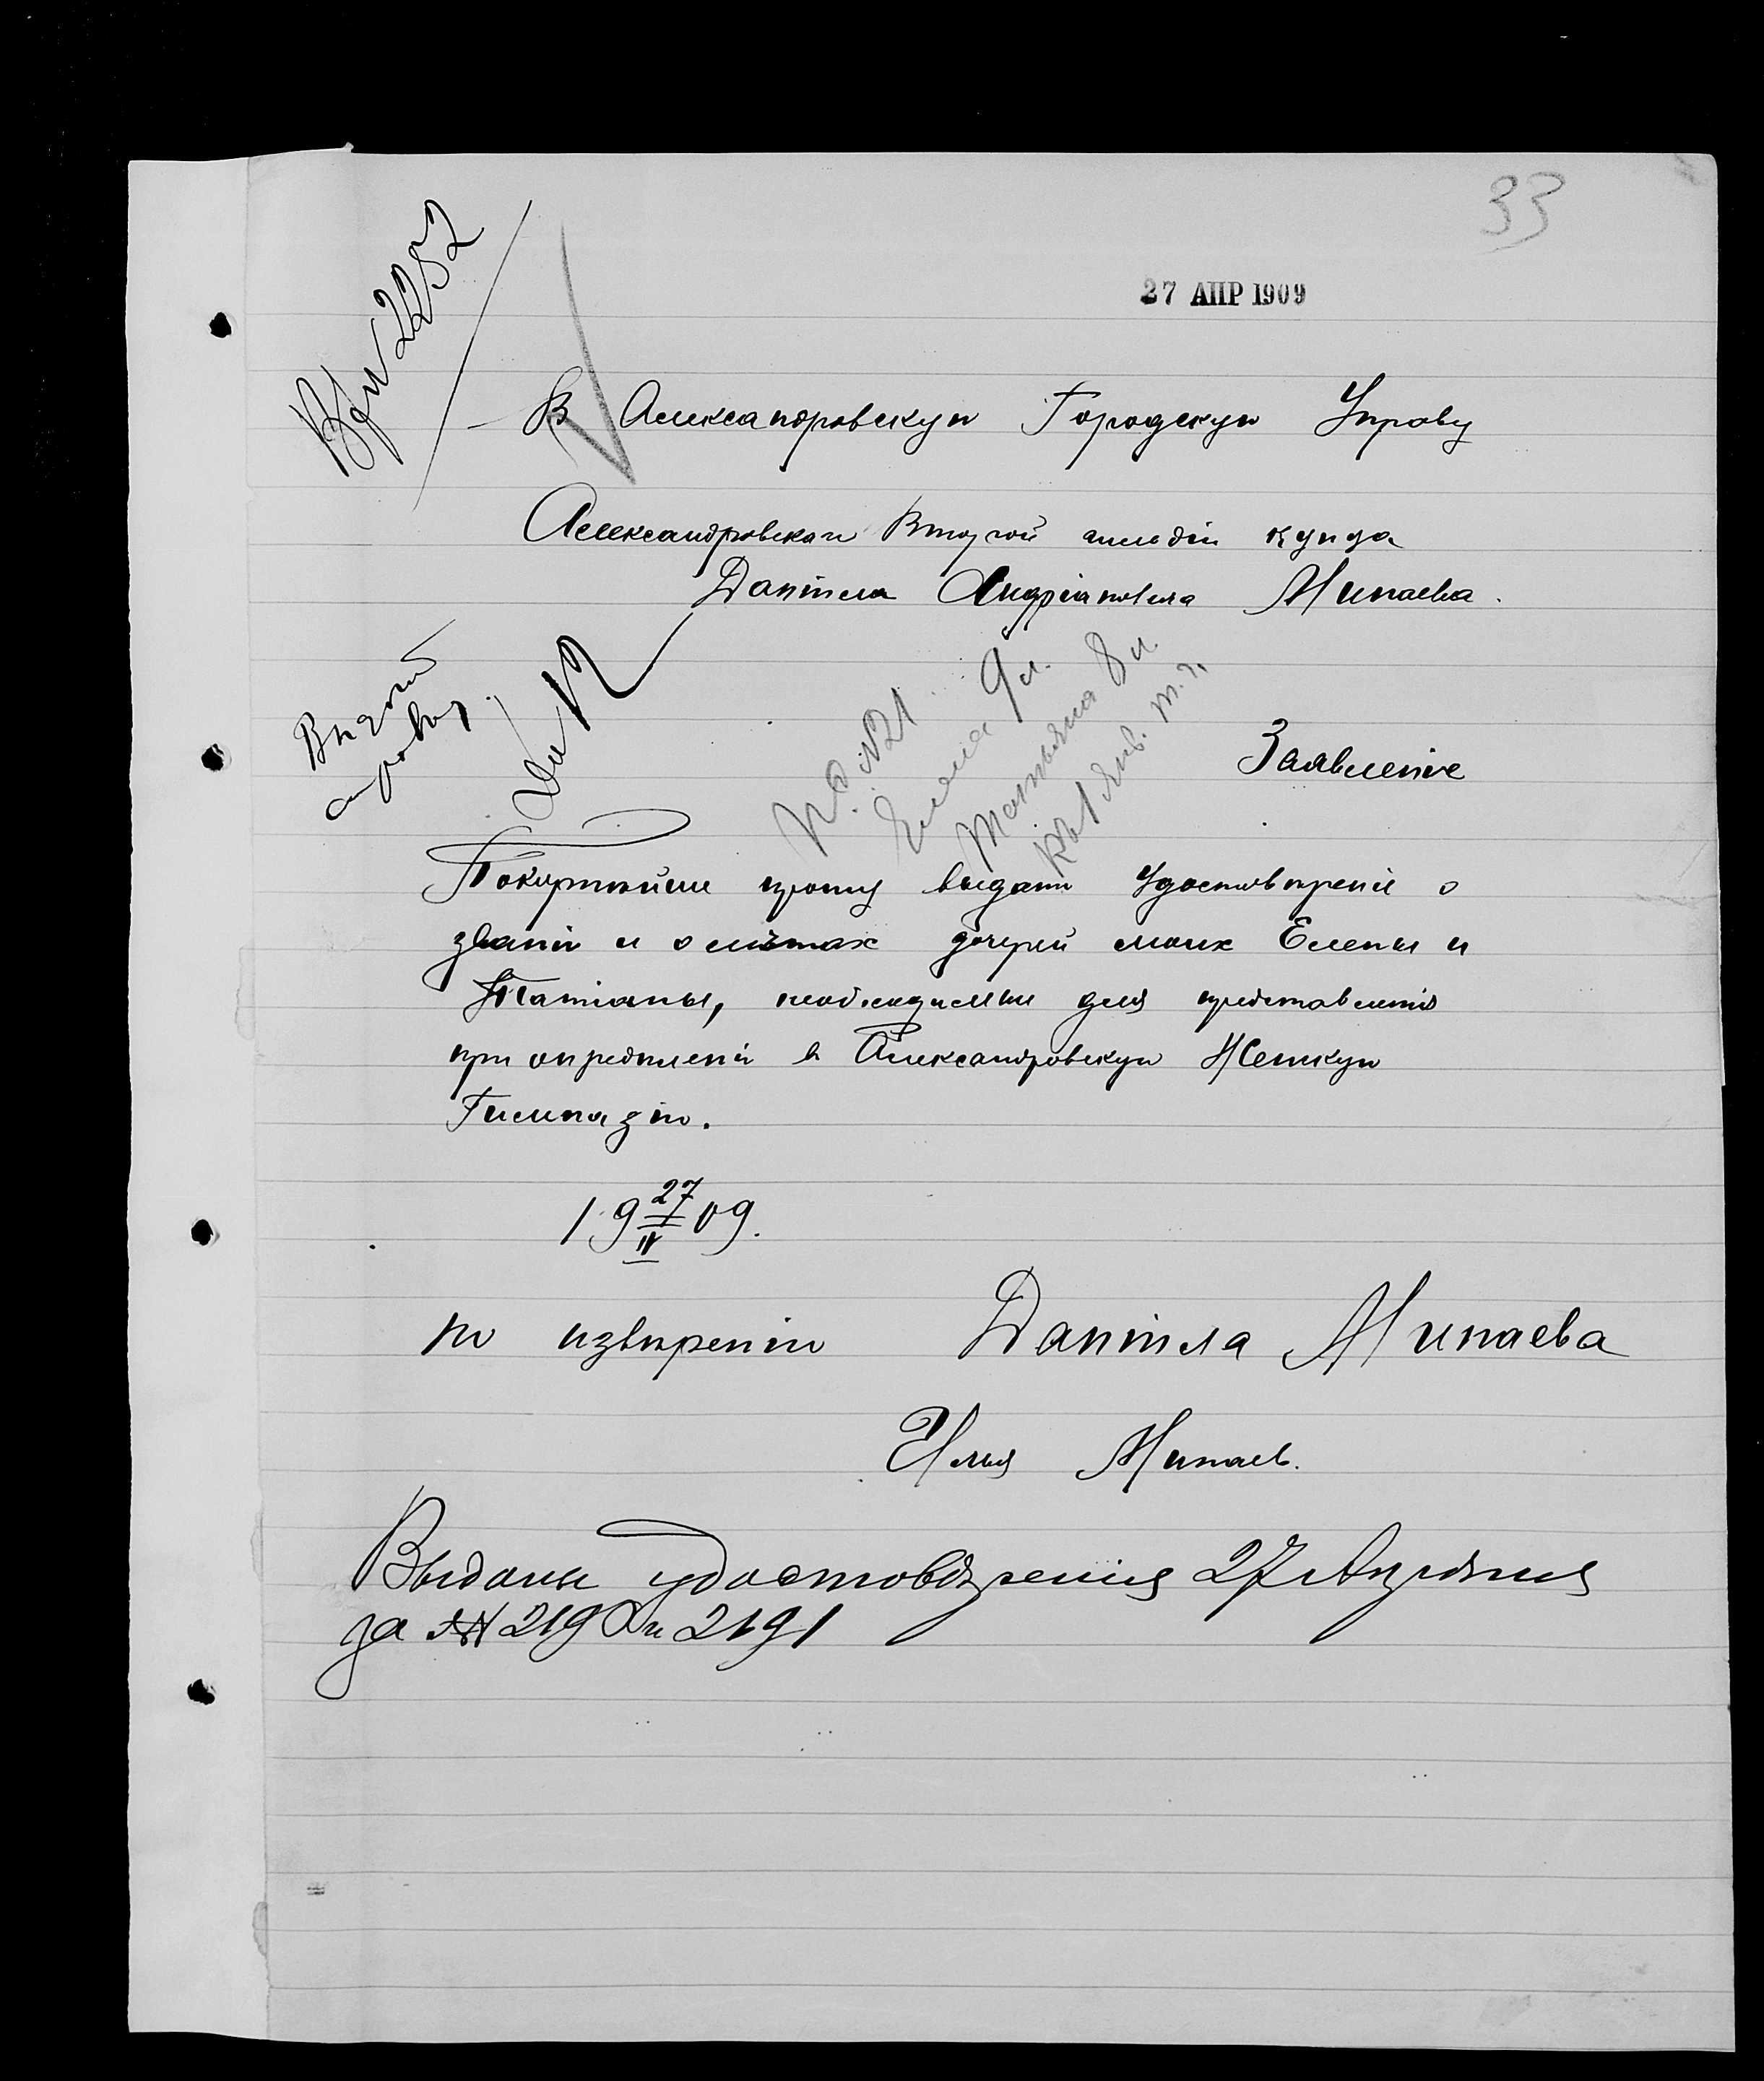 33
27 АПР 1909
Вх № 2252
В Александровскую Городскую Управу
Александровскаго Второй гильдіи купца
Даніила Андріановича Минаева.
Выдать
справку
П. С. № 21
Елена 9 л.
Татьяна 8 л.
къ 1 Янв. т. г.
Заявленіе
Покорнѣйше прошу выдать удостовѣреніе о
званіи и о лѣтах дочерей моих Елены и
Татіаны, необходимыи для представленія
при опредѣленіи в Александровскую Женскую
Гимназію.
19 27/IV 09.
по извѣренію Даніила Минаева
Илья Минаев.
Выданы удостовѣренія 27 Апрѣля
за №№ 2190 и 2191